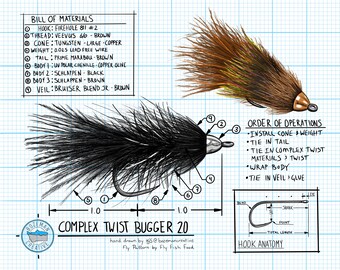 BILL OF MATERIALS
① HOOK: FIREHOLE 811 #2
② THREAD: VEEVUS GG - BROWN
③ CONE: TUNGSTEN - LARGE - COPPER
④ WEIGHT: 0.025 LEAD FREE WIRE
⑤ TAIL: PRIME MARABOU - BROWN
⑥ BODY 1: UV POLAR CHENILLE - COPPER OLIVE
⑦ BODY 2: SCHLAPPEN - BLACK
⑧ BODY 3: SCHLAPPEN - BROWN
⑨ VEIL: BRUISER BLEND JR. - BROWN
ORDER OF OPERATIONS
• INSTALL CONE & WEIGHT
• TIE IN TAIL
• TIE IN COMPLEX TWIST
MATERIALS & TWIST
• WRAP BODY
• TIE IN VEIL & GLUE
1.0
1.0
COMPLEX TWIST BUGGER 2.0
hand drawn by
Fly Pattern by Fly Fish Food
BOZEMAN
CREATIVE
BEND
SHANK
EYE
GAPE
POINT
TOTAL LENGTH
HOOK ANATOMY